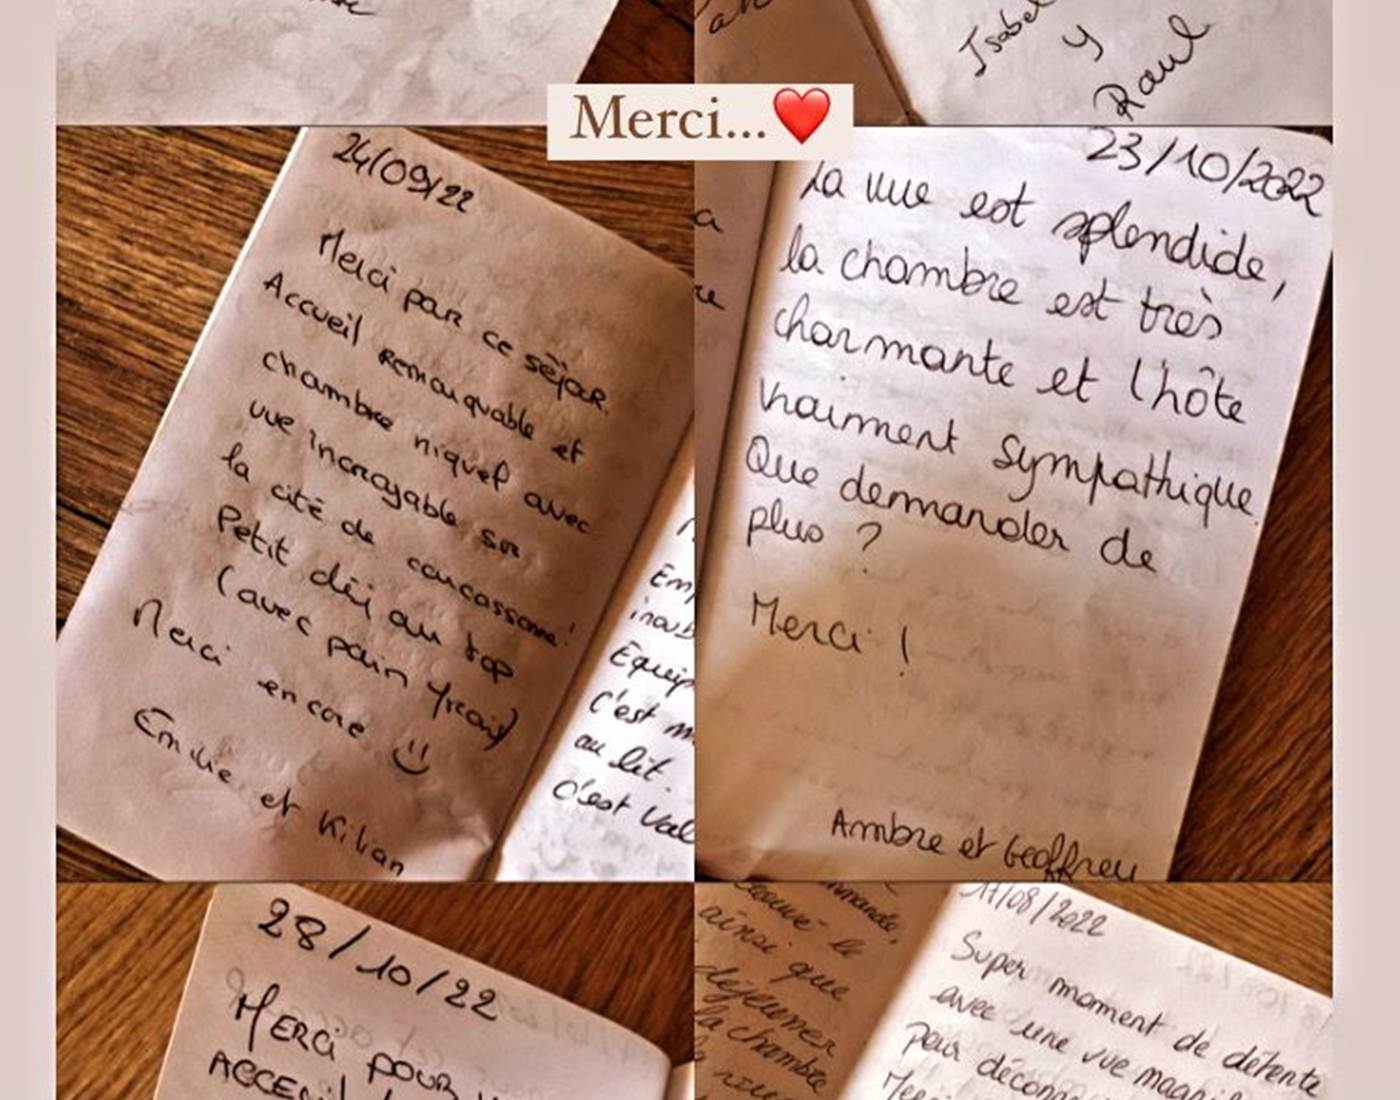 Isabel
y
Raul
Merci...❤️
24/09/22
Merci par ce séjar.
Accueil remarquable et
chambre niquel avec
vue incroyable sur
la cité de carcassonne!
Petit déj au top
(avec pain frais)
Merci encore
Emilie et Kilian
au lit.
c'est Val
23/10/2022
La vue est splendide,
la chambre est très
charmante et l'hôte
vraiment sympathique.
Que demander de
plus ?
Merci !
Ambre et Geoffrey
28/10/22
MERCI POUR
ainsi que
déjeuner
la chambre
11/08/2022
Super moment de détente
avec une vue
pour